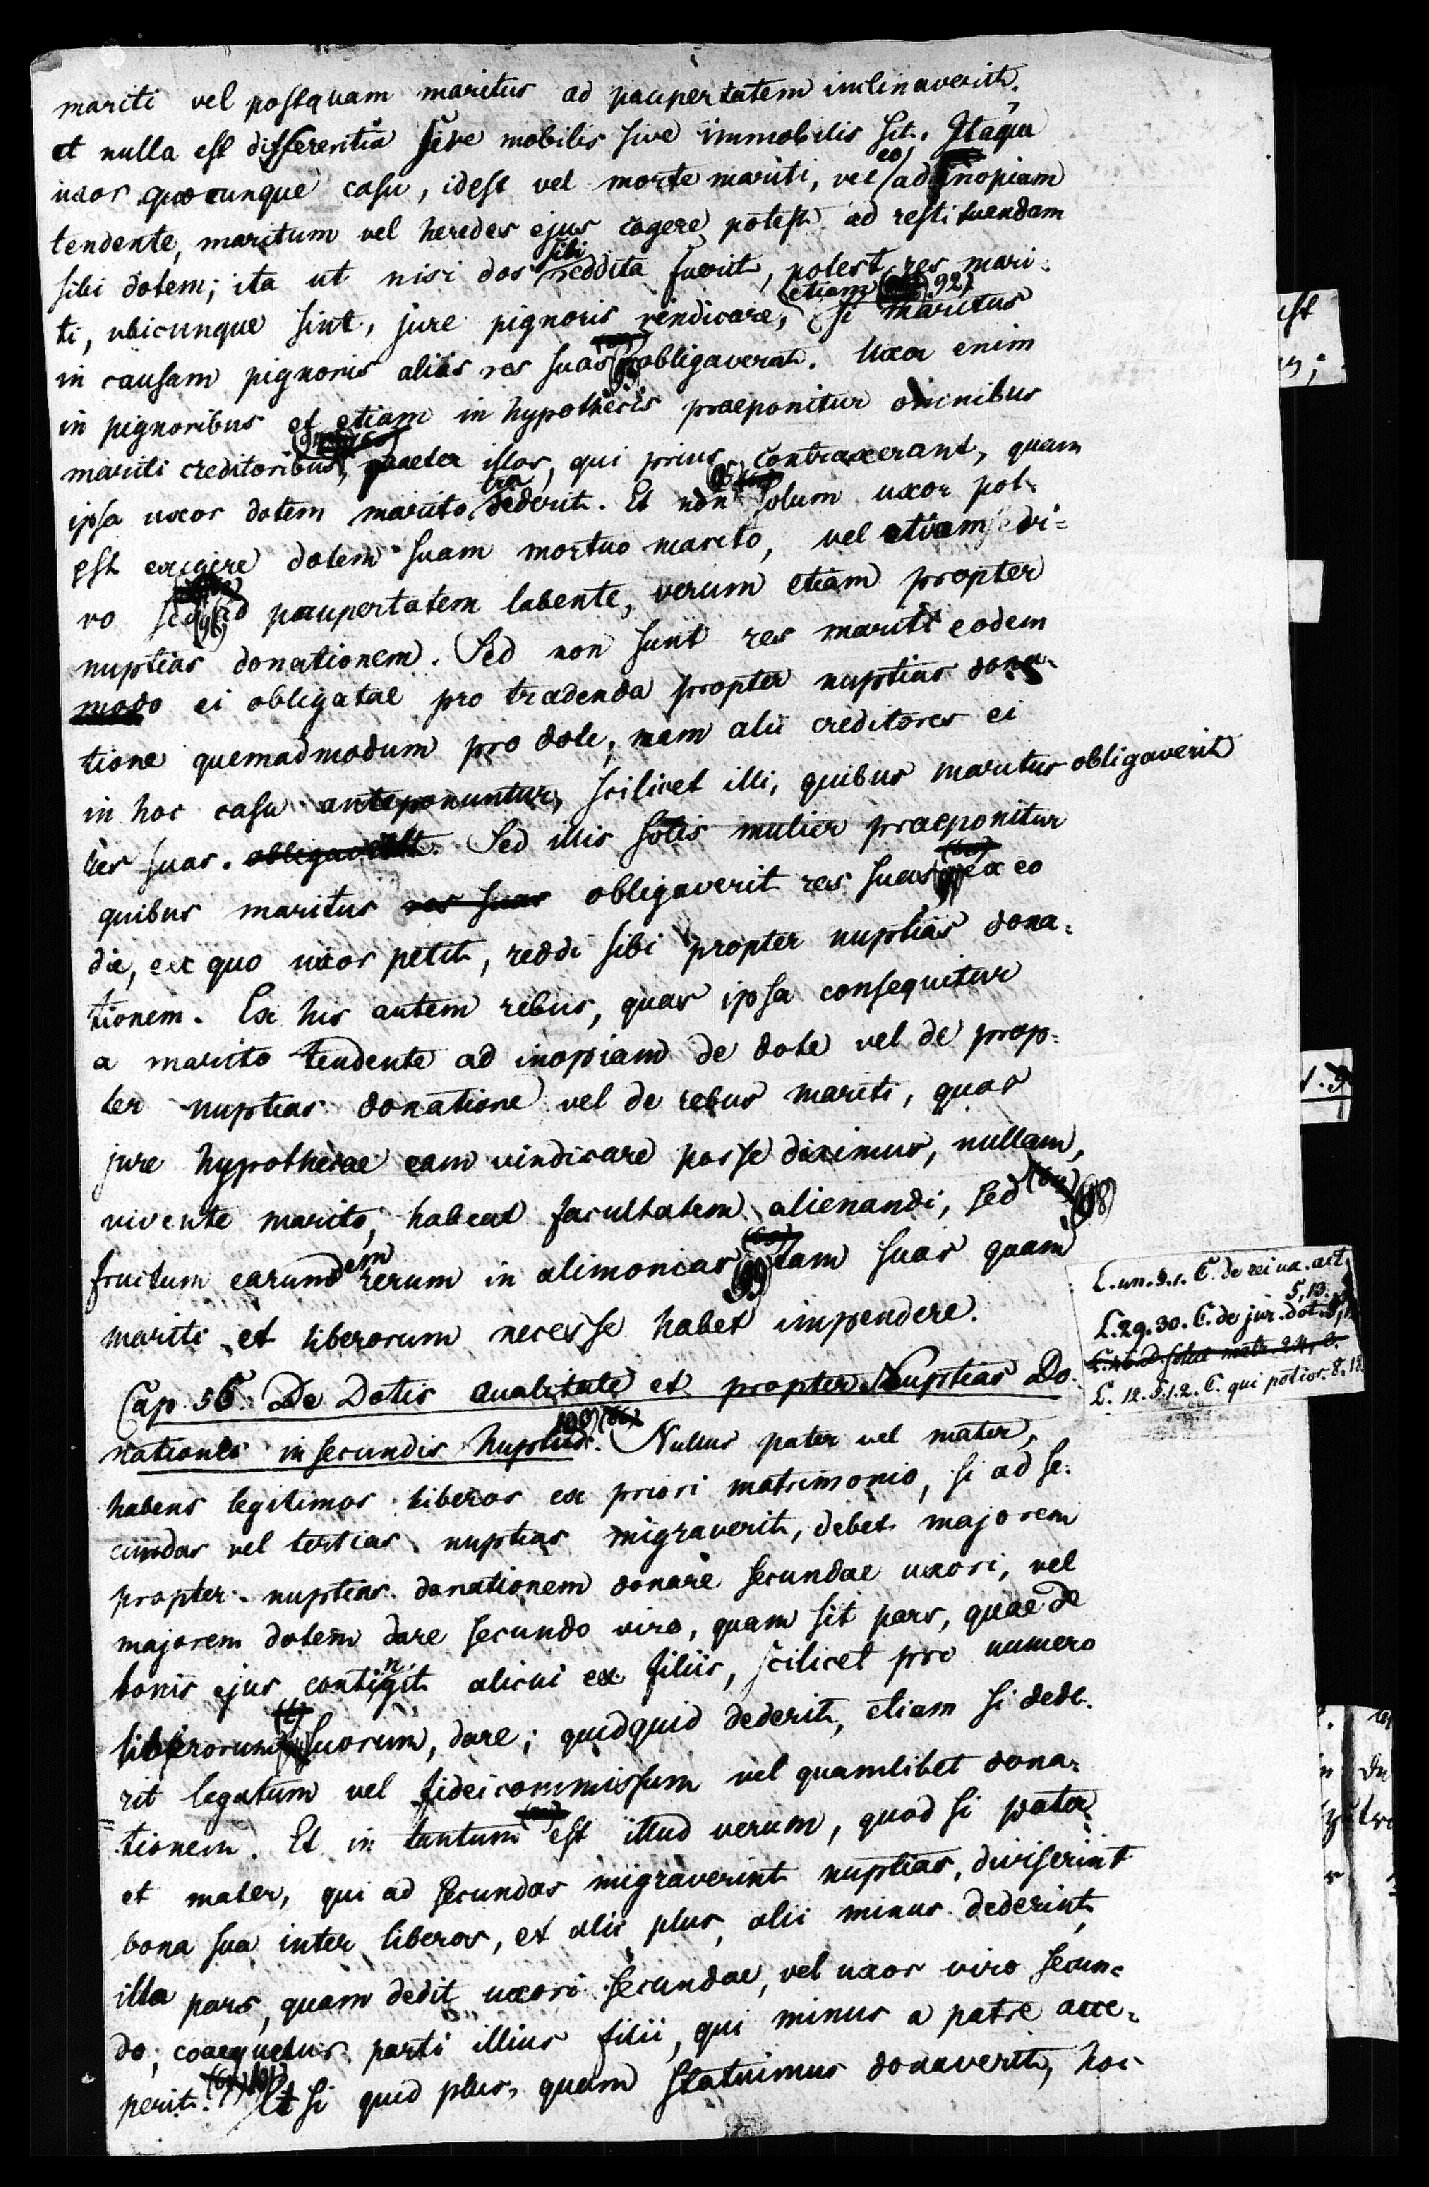 mariti vel postquam maritus ad paupertatem inclinaverit.
et nulla est differentia sive mobilis sive immobilis sit. Itaque
uxor quocunque casu, idest vel morte mariti, vel eo ad inopiam
tendente, maritum vel heredes ejus cogere potest ad restituendam
sibi dotem; ita ut nisi dos sibi reddita fuerit, potest res mari-
ti, ubicunque sint, jure pignoris vindicare, etiam 92) si maritus
in causam pignoris aliis res suas obligaverat. Uxor enim
in pignoribus et etiam in hypothecis praeponitur omnibus
mariti creditoribus, praeter illos, qui prius contraxerant, quam
ipsa uxor dotem marito dederit. Et non solum uxor pot-
est exigere dotem suam mortuo marito, vel etiam vi-
vo sed ad paupertatem labente, verum etiam propter
(96)
nuptias donationem. Sed non sunt res mariti eodem
modo ei obligatae pro tradenda propter nuptias dona-
tione quemadmodum pro dote, nam alii creditores ei
in hoc casu anteponuntur, scilicet illi, quibus maritus obligaverit
res suas. obligaverit. Sed illis solis mulier praeponitur
quibus maritus res suas obligaverit res suas ex eo
die, ex quo uxor petit, reddi sibi propter nuptias dona-
tionem. Ex his autem rebus, quas ipsa consequitur
a marito tendente ad inopiam de dote vel de prop-
ter nuptias donatione vel de rebus mariti, quas
jure hypothecae eam vindicare posse diximus, nullam,
vivente marito, habeat facultatem alienandi, sed (98)
fructum earundem rerum in alimonias (99) tam suas quam
mariti et liberorum necesse habet impendere.
L. un. §. 1. C. de rei ux. act.
5, 13.
L. 29. 30. C. de jur. dot.
L. 12. §. 1. 2. C. qui potior. 8, 18.
Cap. 56. De Dotis Qualitate et propter Nuptias Do-
nationes in secundis Nuptiis. 100) Nullus pater vel mater,
habens legitimos liberos ex priori matrimonio, si ad se-
cundas vel tertias nuptias migraverit, debet majorem
propter nuptias donationem donare secundae uxori, vel
majorem dotem dare secundo viro, quam sit pars, quae de
bonis ejus contingit alicui ex filiis, scilicet pro numero
liberorum suorum, dare; quidquid dederit, etiam si dede-
rit legatum vel fideicommissum vel quamlibet dona-
tionem. Et in tantum est illud verum, quod si pater
et mater, qui ad secundas migraverint nuptias, diviserint
bona sua inter liberos, et alii plus, alii minus dederint,
illa pars, quam dedit uxori secundae, vel uxor viro secun-
do, coaequetur parti illius filii, qui minus a patre acce-
perit. Et si quid plus, quam statuimus donaverit, hoc